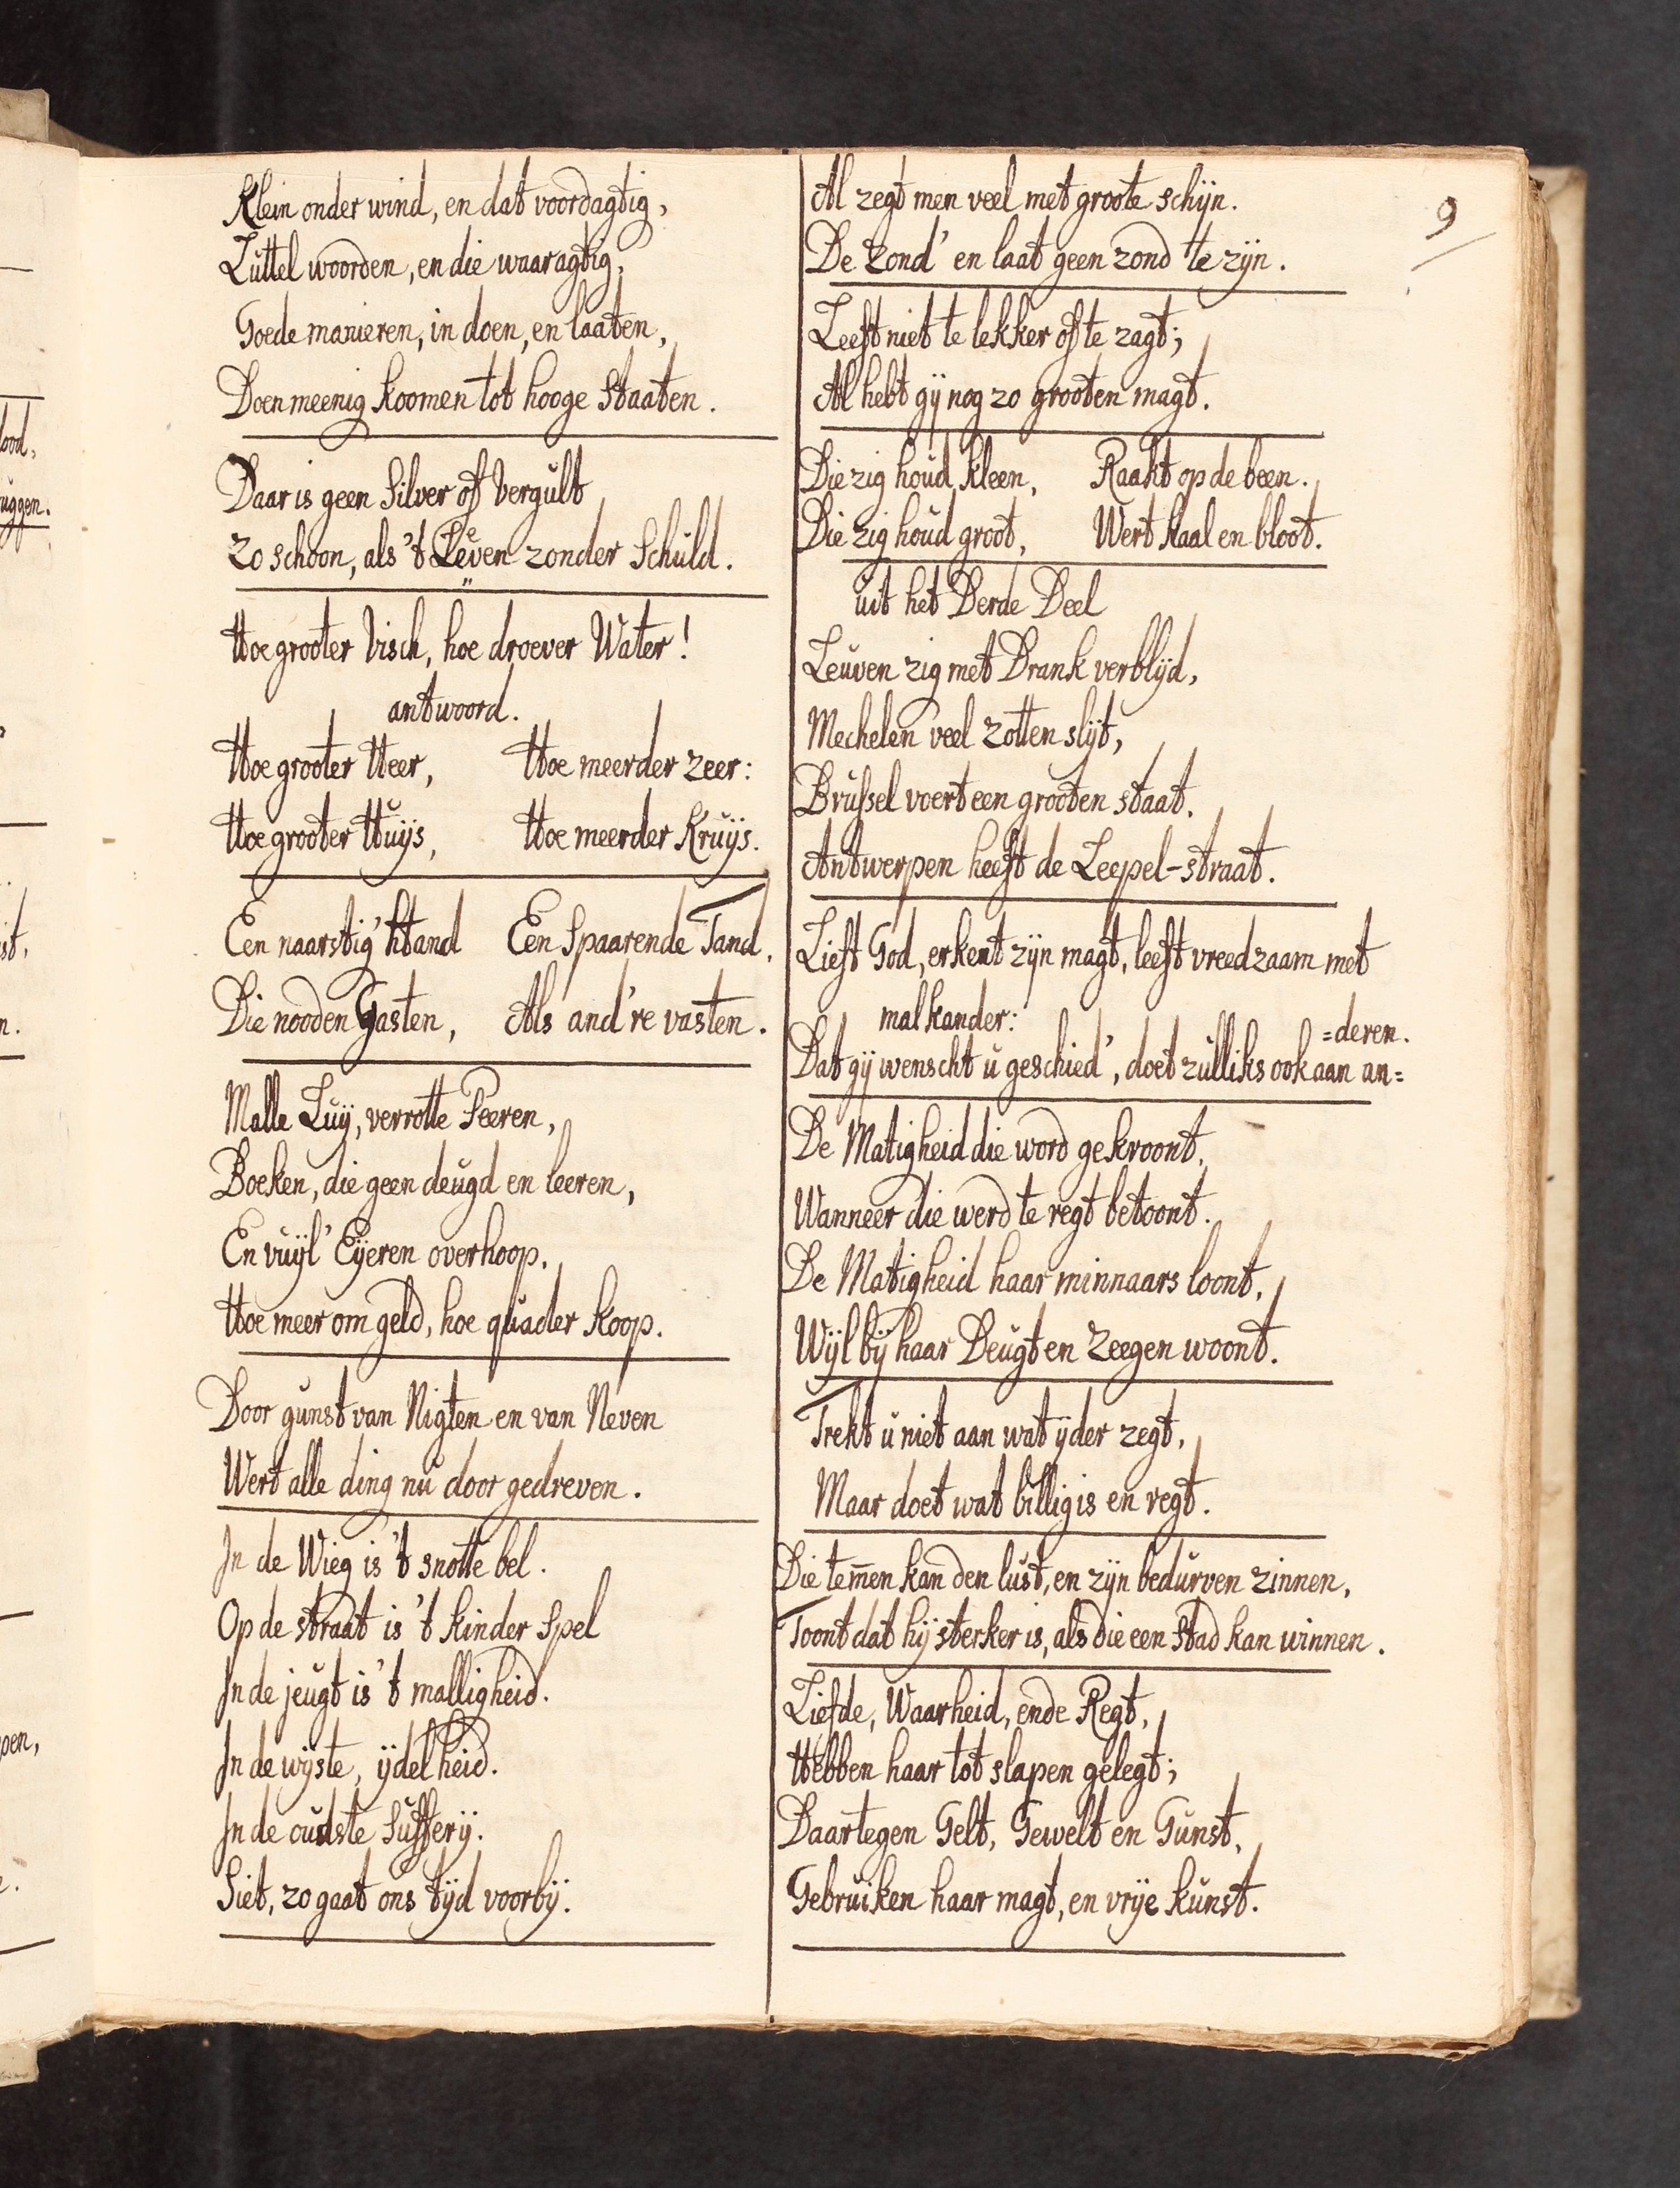 Klein onder wind, en dat voordagtig,
Luttel woorden, en die waaragtig,
Goede manieren, in doen, en laaten,
Doen meenig koomen tot hooge Staaten.
Daar is geen Silver of Vergult
Zo schoon, als 't Leven zonder Schuld.
Hoe grooter Visch, hoe droever Water!
antwoord.
Hoe grooter Heer, Hoe meerder zeer:
Hoe grooter Huijs, Hoe meerder Kruijs.
Een naarstig' Hand Een Spaarende Tand,
Die nooden Gasten, Als and're vasten.
Malle Luij, verrotte Peeren,
Boeken, die geen deugd en leeren,
En vuijl' Eijeren overhoop,
Hoe meer om geld, hoe quader koop.
Door gunst van Nigten en van Neven
Wert alle ding nu door gedreven.
In de Wieg is 't snotte bel.
Op de straat is 't kinder Spel
In de jeugt is 't malligheid.
In de wijste, ijdelheid.
In de oudste Sufferij.
Siet, zo gaat ons tijd voorbij.
9
Al zegt men veel met groote schijn.
De Zond' en laat geen zond te zijn.
Leeft niet te lekker of te zagt;
Al hebt gij nog zo grooten magt.
Die zig houd kleen, Raakt op de been.
Die zig houd groot, Wert kaal en bloot.
uit het Derde Deel
Leuven zig met Drank verblijd,
Mechelen veel zotten slijt,
Brussel voert een grooten staat,
Antwerpen heeft de Leepel-straat.
Lieft God, erkent zijn magt, leeft vreedzaam met
malkander:
Dat gij wenscht u geschied', doet zulliks ook aan an=
=deren.
De Matigheid die word gekroont,
Wanneer die werd te regt betoont.
De Matigheid haar minnaars loont,
Wijl bij haar Deugt en Zeegen woont.
Trekt u niet aan wat ijder zegt,
Maar doet wat billig is en regt.
Die tem̅en kan den lust, en zijn bedurven zinnen,
Toont dat hij sterker is, als die een Stad kan winnen.
Liefde, Waarheid, ende Regt,
Hebben haar tot slapen gelegt;
Daartegen Gelt, Gewelt en Gunst,
Gebruiken haar magt, en vrije kunst.